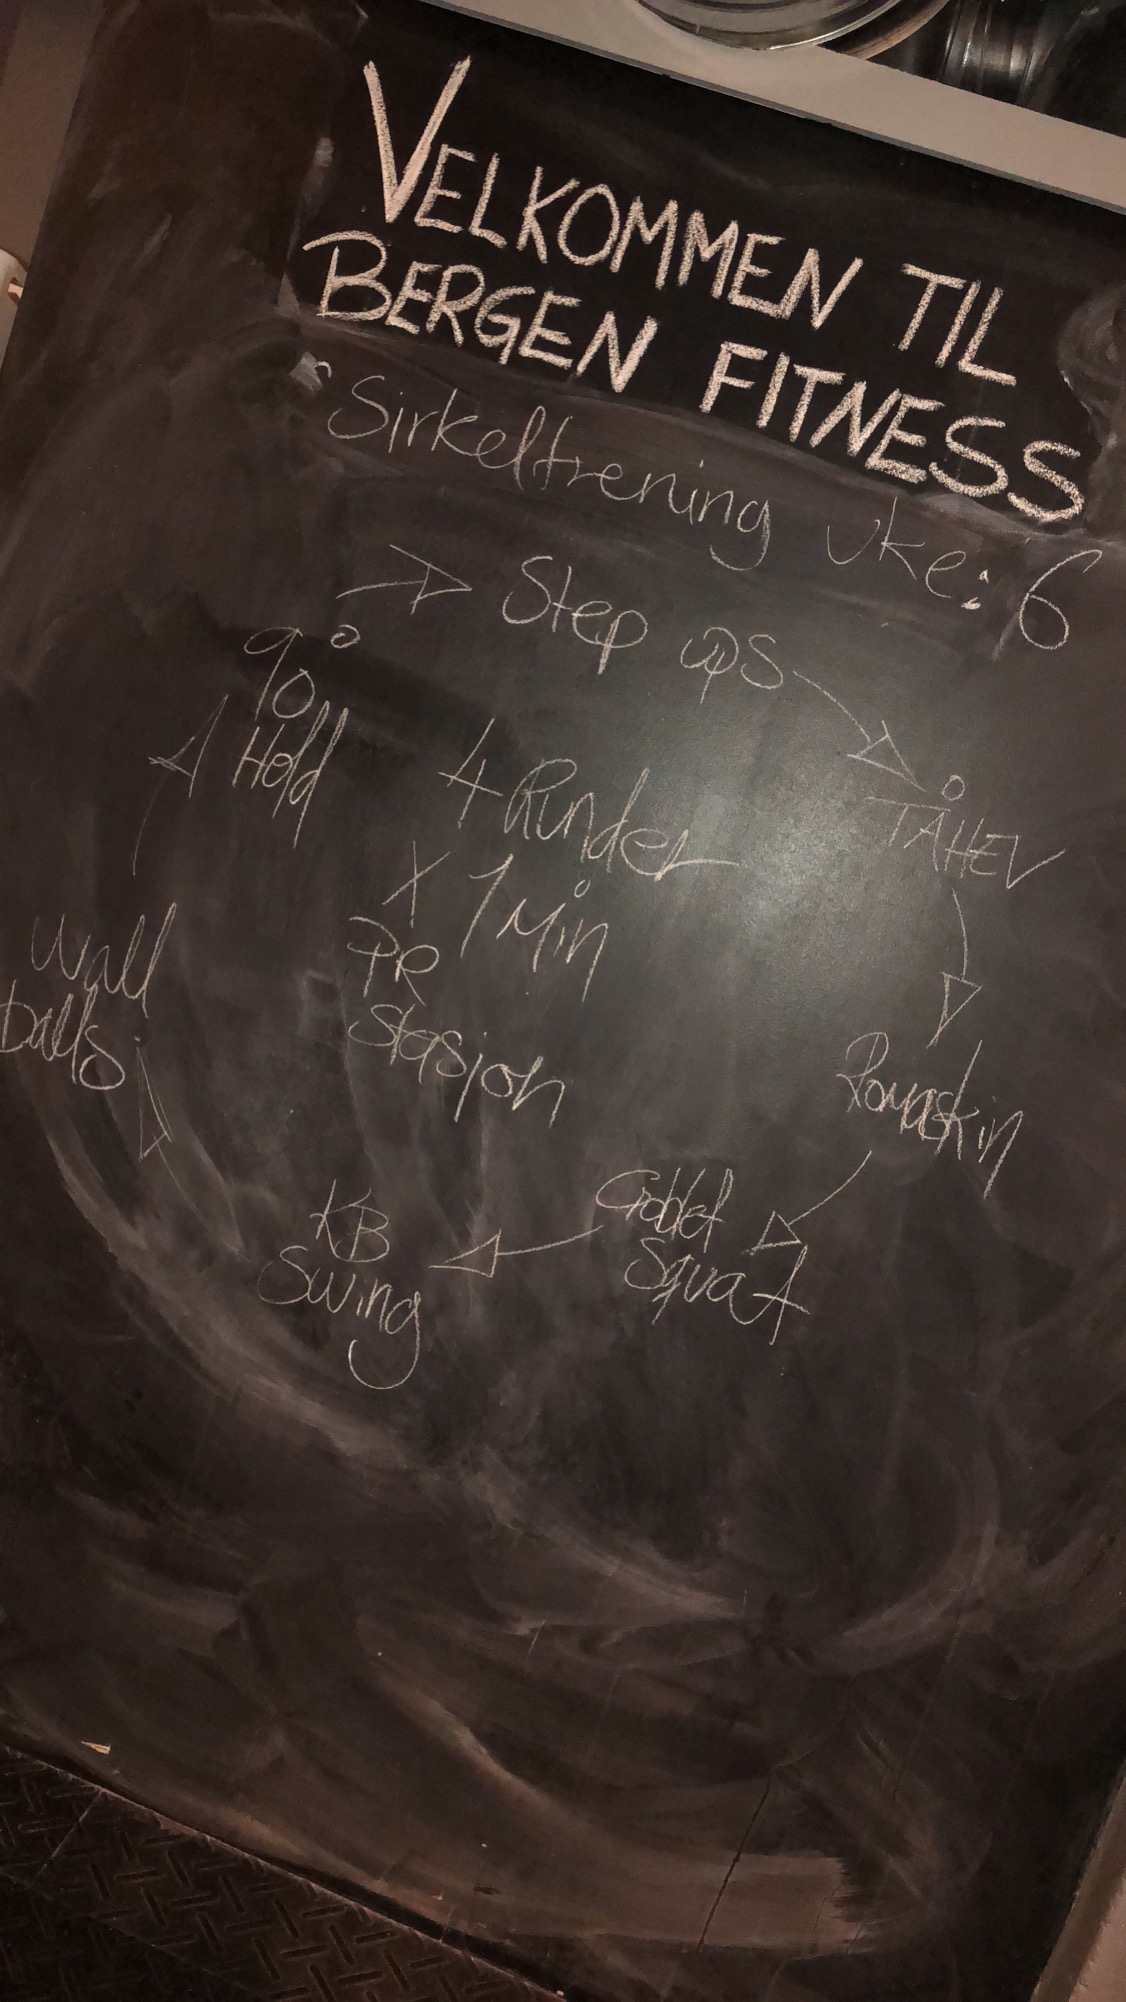 VELKOMMEN TIL
BERGEN FITNESS
Sirkeltrening uke: 6
Step ups
TÅHEV
Romaskin
Goblet
Squat
KB
Swing
Wall
balls
90°
Hold
4 Runder
X 1 Min
PR
Stasjon